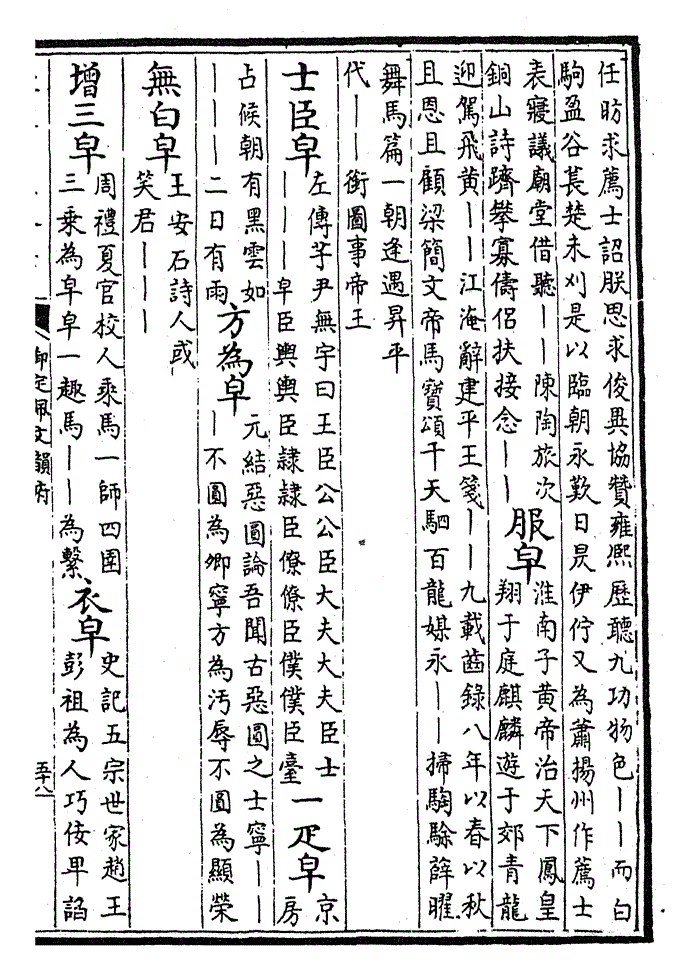 任昉求薦士詔朕思求俊異協贊雍熙歷聽九功物色——而白
駒盈谷萇楚未刈是以臨朝永歎日昃伊佇又為蕭揚州作薦士
表寢議廟堂借聽——陳陶旅次
銅山詩躋攀寡儔侶扶接念——
服皁
淮南子黃帝治天下鳳皇
翔于庭麒麟遊于郊青龍
迎駕飛黃——江淹辭建平王箋——九載齒錄八年以春以秋
且恩且顧梁簡文帝馬寶頌千天駟百龍媒永——掃騊駼薛曜
舞馬篇一朝逢遇昇平
代——銜圖事帝王
士臣皁
左傳芋尹無宇曰王臣公公臣大夫大夫臣士
———皁臣輿輿臣隸隸臣僚僚臣僕僕臣臺
一疋皁
京
房
占候朝有黑雲如
———二日有雨
方為皁
元結惡圓論吾聞古惡圓之士寧——
—不圓為卿寧方為汚辱不圓為顯榮
無白皁
王安石詩人或
笑君———
增三皁
周禮夏官校人乘馬一師四圉
三乘為皁皁一趣馬——為繫
衣皁
史記五宗世家趙王
彭祖為人巧佞卑諂
御定佩文韻府
五十八